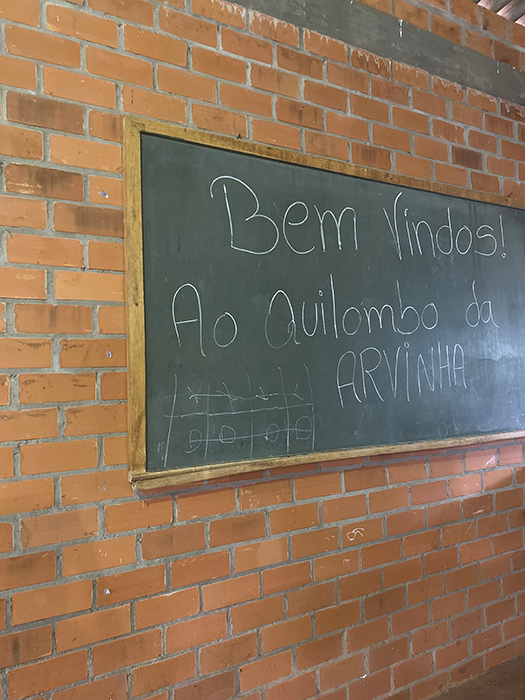 Bem Vindos!
Ao Quilombo da
ARVINHA